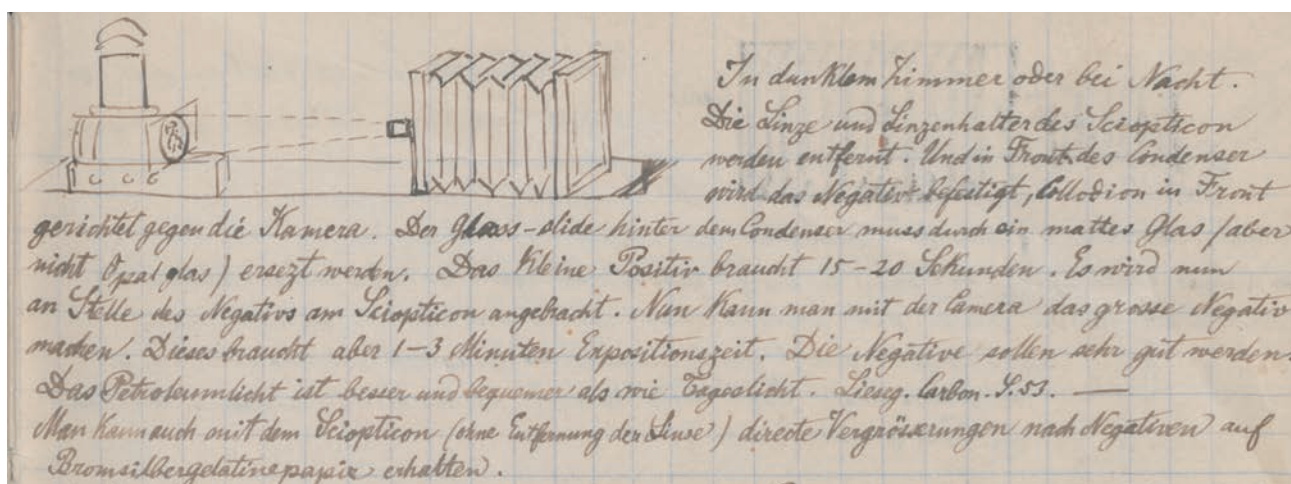 In dunklem Zimmer oder bei Nacht.
Die Linze und Linzenhalter des Sciopticon
werden entfernt. Und in Front des Condenser
wird das Negativ befestigt, Collodion in Front
gerichtet gegen die Kamera. Der Glass-slide hinter dem Condenser muss durch ein mattes Glas (aber
nicht Opal glas) ersezt werden. Das kleine Positiv braucht 15-20 Sekunden. Es wird nun
an Stelle des Negativs am Sciopticon angebracht. Nun kann man mit der Camera das grosse Negativ
machen. Dieses braucht aber 1-3 Minuten Expositionszeit. Die Negative sollen sehr gut werden.
Das Petroleumlicht ist besser und bequemer als wie Tageslicht. Lieseg. Carbon. S. 53. —
Man kann auch mit dem Sciopticon (ohne Entfernung der Linse) directe Vergrösserungen nach Negativen auf
Bromsilbergelatinepapier erhalten.